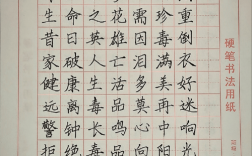 生命之花需珍重
昔日英雄因毒倒
家破人亡泪满衣
健康生活多美好
远离毒品莫再迷
警钟长鸣心中响
拒绝毒品向阳光
硬笔书法用纸